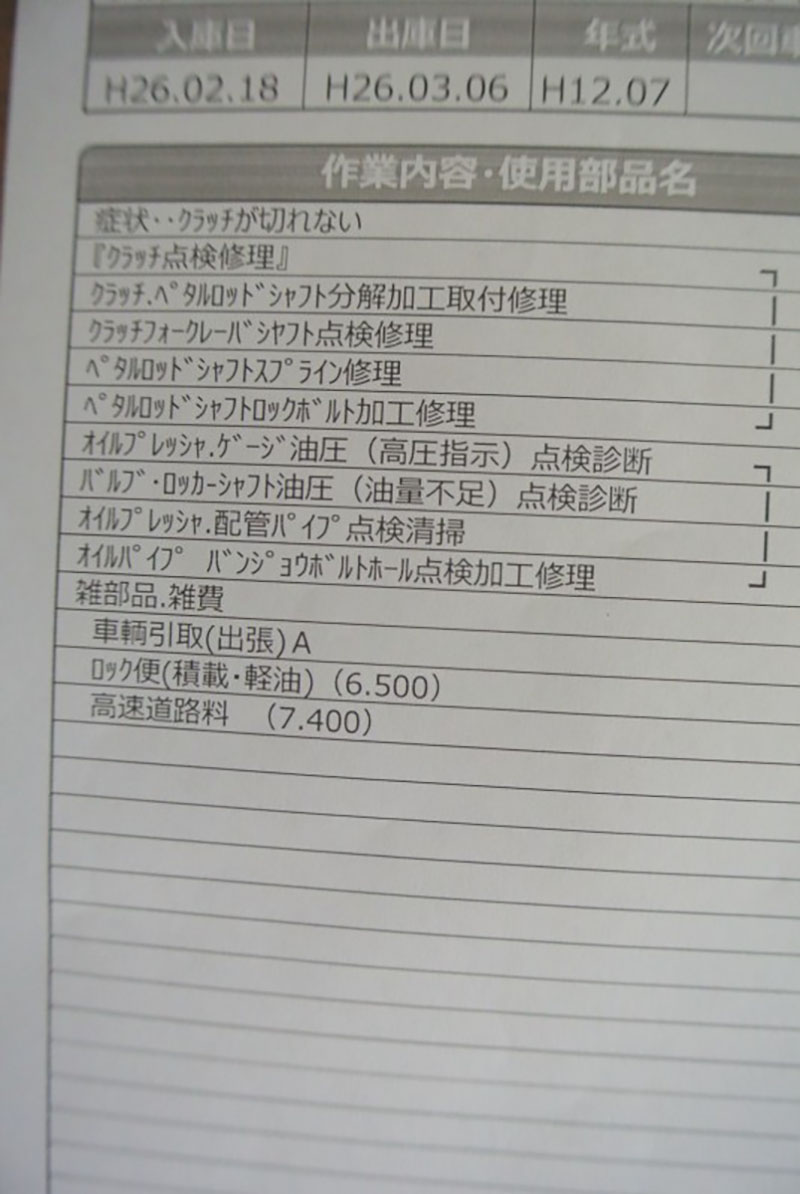 入庫日 出庫日 年式 次回車
H26.02.18 H26.03.06 H12.07
作業内容・使用部品名
症状‥ｸﾗｯﾁが切れない
『ｸﾗｯﾁ点検修理』
ｸﾗｯﾁ.ﾍﾟﾀﾙﾛｯﾄﾞｼｬﾌﾄ分解加工取付修理
ｸﾗｯﾁﾌｫｰｸﾚｰﾊﾞｼﾔﾌﾄ点検修理
ﾍﾟﾀﾙﾛｯﾄﾞｼｬﾌﾄｽﾌﾟﾗｲﾝ修理
ﾍﾟﾀﾙﾛｯﾄﾞｼｬﾌﾄﾛｯｸﾎﾞﾙﾄ加工修理
ｵｲﾙﾌﾟﾚｯｼｬ.ｹﾞｰｼﾞ油圧（高圧指示）点検診断
ﾊﾞﾙﾌﾞ・ﾛｯｶｰｼｬﾌﾄ油圧（油量不足）点検診断
ｵｲﾙﾌﾟﾚｯｼｬ.配管ﾊﾟｲﾌﾟ点検清掃
ｵｲﾙﾊﾟｲﾌﾟ ﾊﾞﾝｼﾞｮｳﾎﾞﾙﾄﾎｰﾙ点検加工修理
雑部品.雑費
車輌引取(出張)A
ﾛｯｸ便(積載・軽油)（6.500）
高速道路料 （7.400）